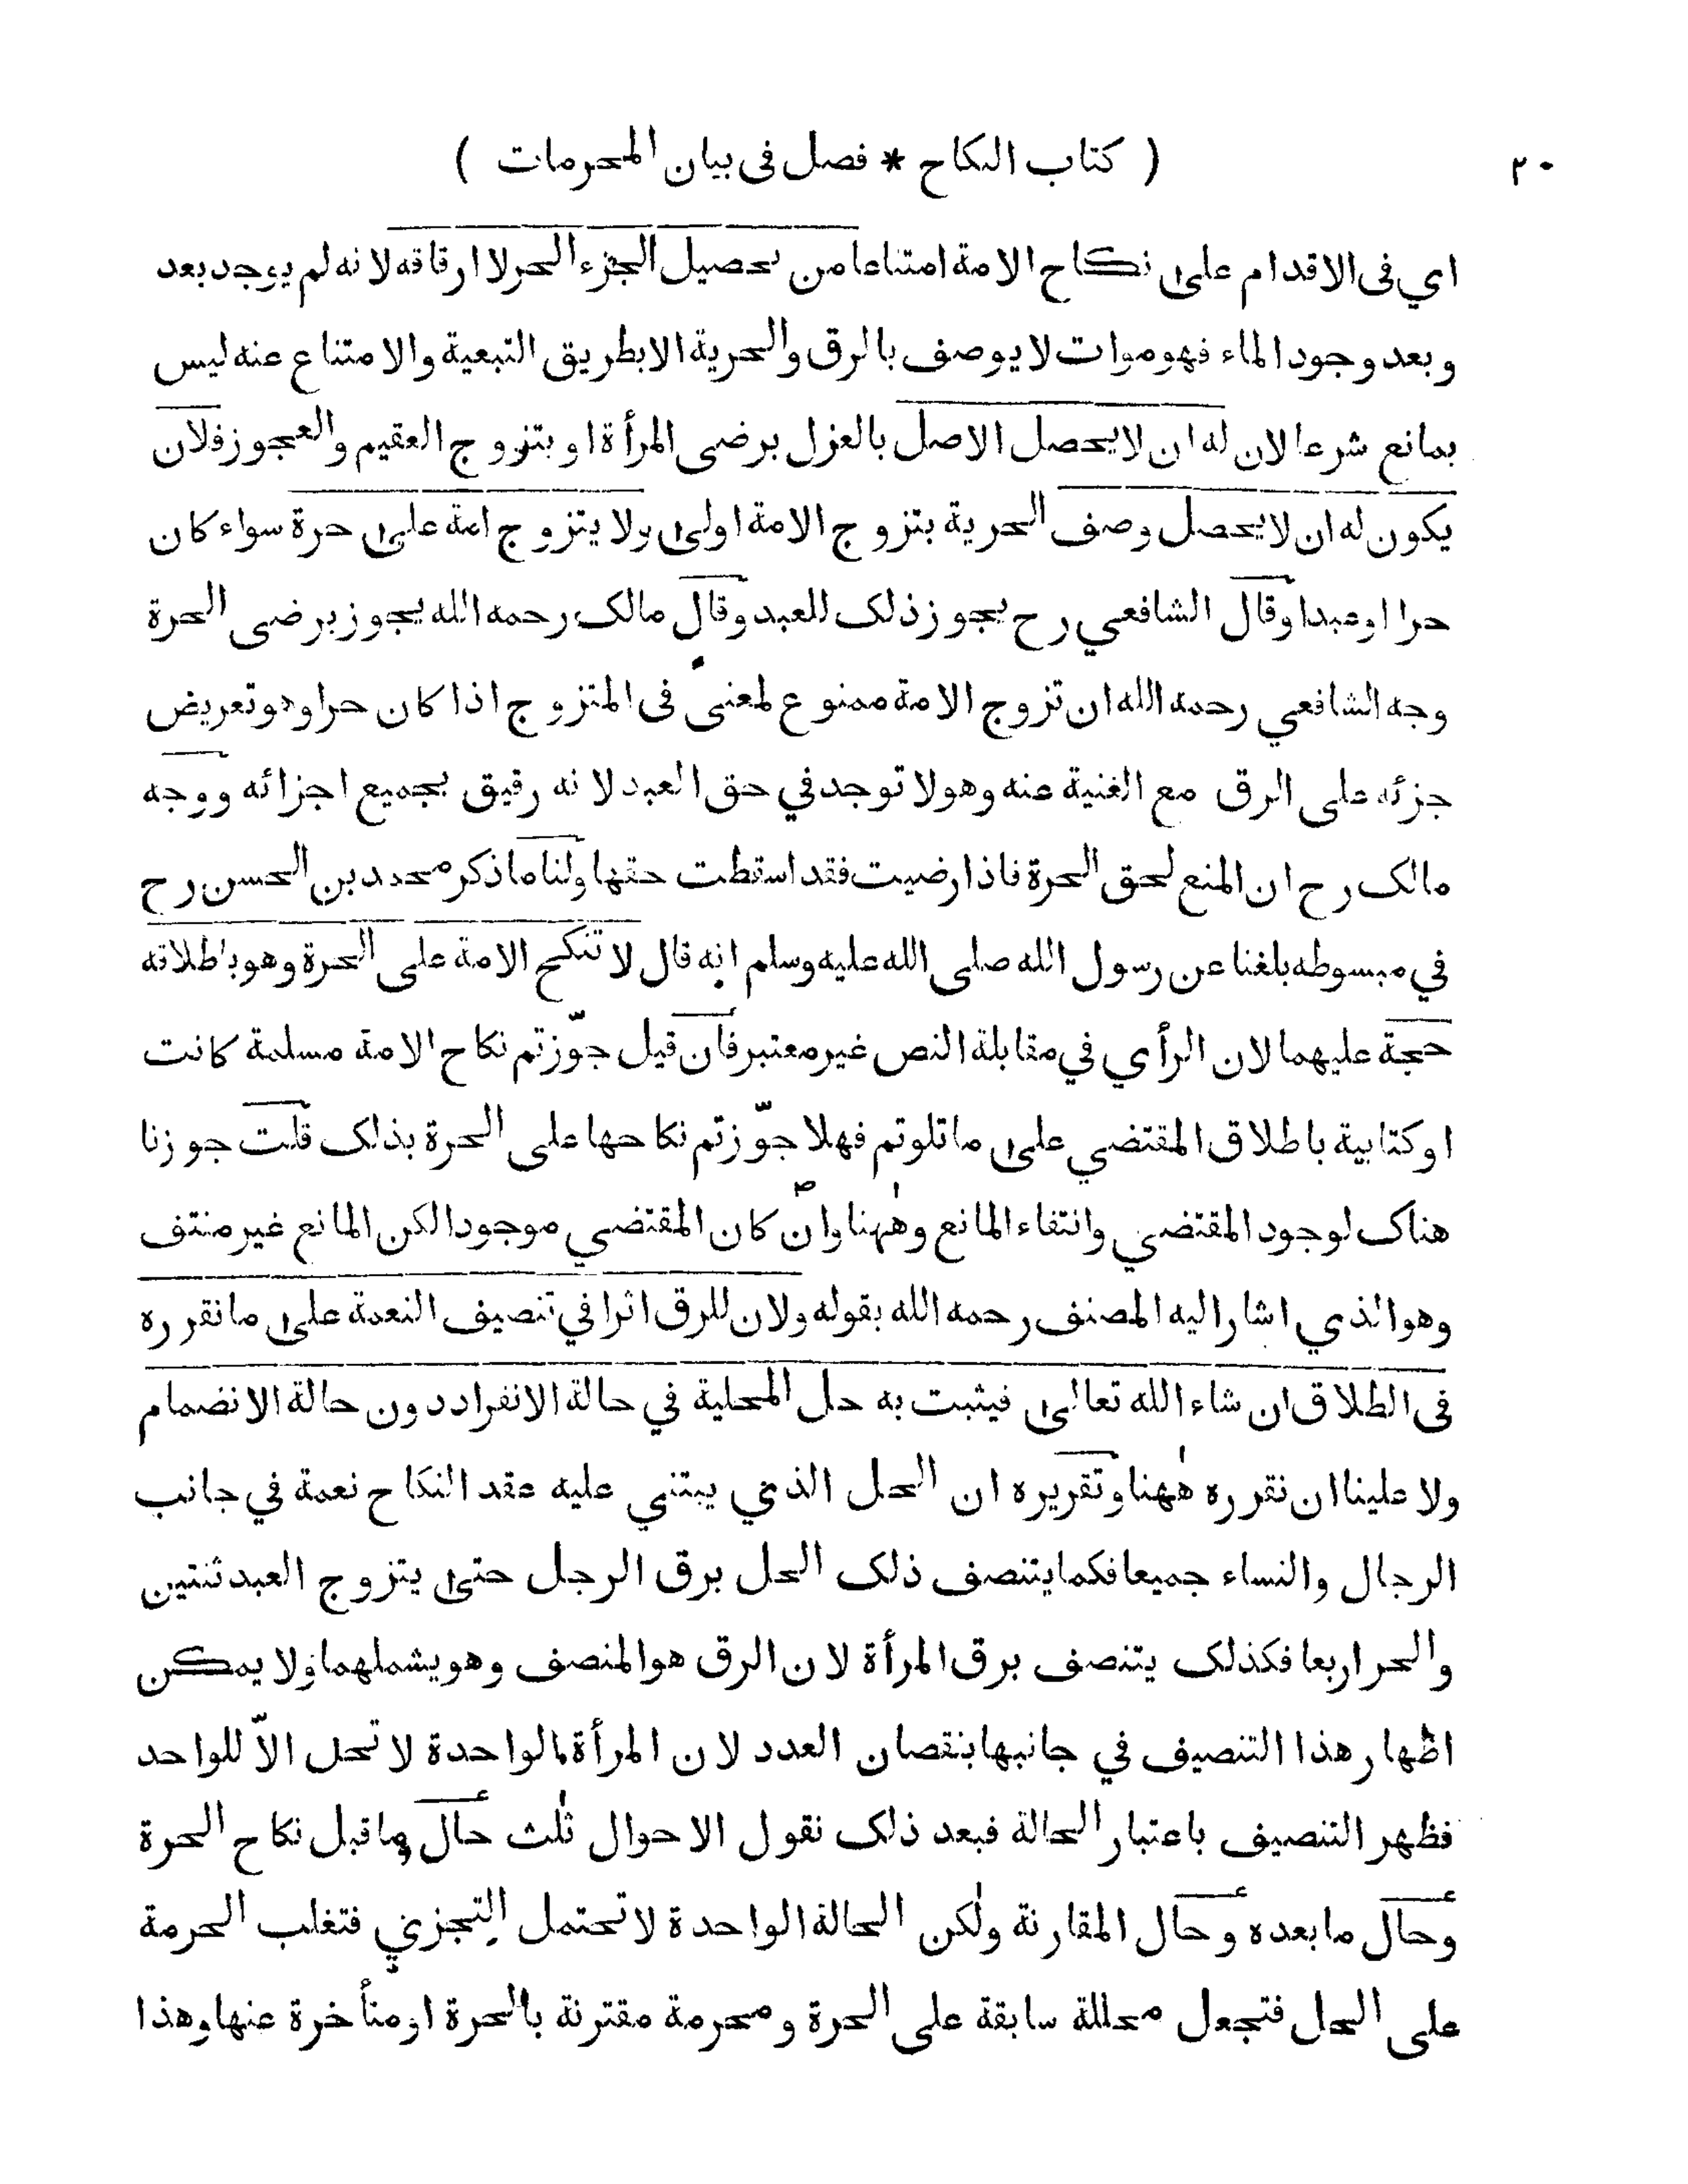 ٢٠ ( كتاب النكاح * فصل فى بيان المحرمات )
اي فى الاقدام على نكاح الامة امتناعا من تحصيل الجزء الحر لا ارقاقه لانه لم يوجد بعد
وبعد وجود الماء فهو موات لا يوصف بالرق والحرية الا بطريق التبعية والامتناع عنه ليس
بمانع شرعا لان له ان لا يحصل الاصل بالعزل برضى المرأة او بتزوج العقيم والعجوز فلان
يكون له ان لا يحصل وصف الحرية بتزوج الامة اولى ولا يتزوج امة على حرة سواء كان
حرا او عبدا وقال الشافعي رح يجوز ذلك للعبد وقال مالك رحمه الله يجوز برضى الحرة
وجه الشافعي رحمه الله ان تزوج الامة ممنوع لمعنى فى المتزوج اذا كان حرا وهو تعريض
جزئه على الرق مع الغنية عنه وهو لا توجد في حق العبد لانه رقيق بجميع اجزائه ووجه
مالك رح ان المنع لحق الحرة فاذا رضيت فقد اسقطت حقها ولنا ما ذكر محمد بن الحسن رح
في مبسوطه بلغنا عن رسول الله صلى الله عليه وسلم انه قال لا تنكح الامة على الحرة وهو باطلاقه
حجة عليهما لان الرأي في مقابلة النص غير معتبر فان قيل جوّزتم نكاح الامة مسلمة كانت
او كتابية باطلاق المقتضي على ما تلوتم فهلا جوّزتم نكاحها على الحرة بذلك قلت جوزنا
هناك لوجود المقتضي وانتفاء المانع وههنا وان كان المقتضي موجودا لكن المانع غير منتف
وهو الذي اشار اليه المصنف رحمه الله بقوله ولان للرق اثرا في تنصيف النعمة على ما نقرره
فى الطلاق ان شاء الله تعالى فيثبت به حل المحلية في حالة الانفراد دون حالة الانضمام
ولا علينا ان نقرره ههنا وتقريره ان الحل الذي يبتني عليه عقد النكاح نعمة في جانب
الرجال والنساء جميعا فكما يتنصف ذلك الحل برق الرجل حتى يتزوج العبد ثنتين
والحر اربعا فكذلك يتنصف برق المرأة لان الرق هو المنصف وهو يشملهما ولا يمكن
اظهار هذا التنصيف في جانبها بنقصان العدد لان المرأة الواحدة لا تحل الاّ للواحد
فظهر التنصيف باعتبار الحالة فبعد ذلك نقول الاحوال ثلث حال ما قبل نكاح الحرة
وحال ما بعده وحال المقارنة ولكن الحالة الواحدة لا تحتمل التجزي فتغلب الحرمة
على الحل فتجعل محللة سابقة على الحرة ومحرمة مقترنة بالحرة او متأخرة عنها وهذا